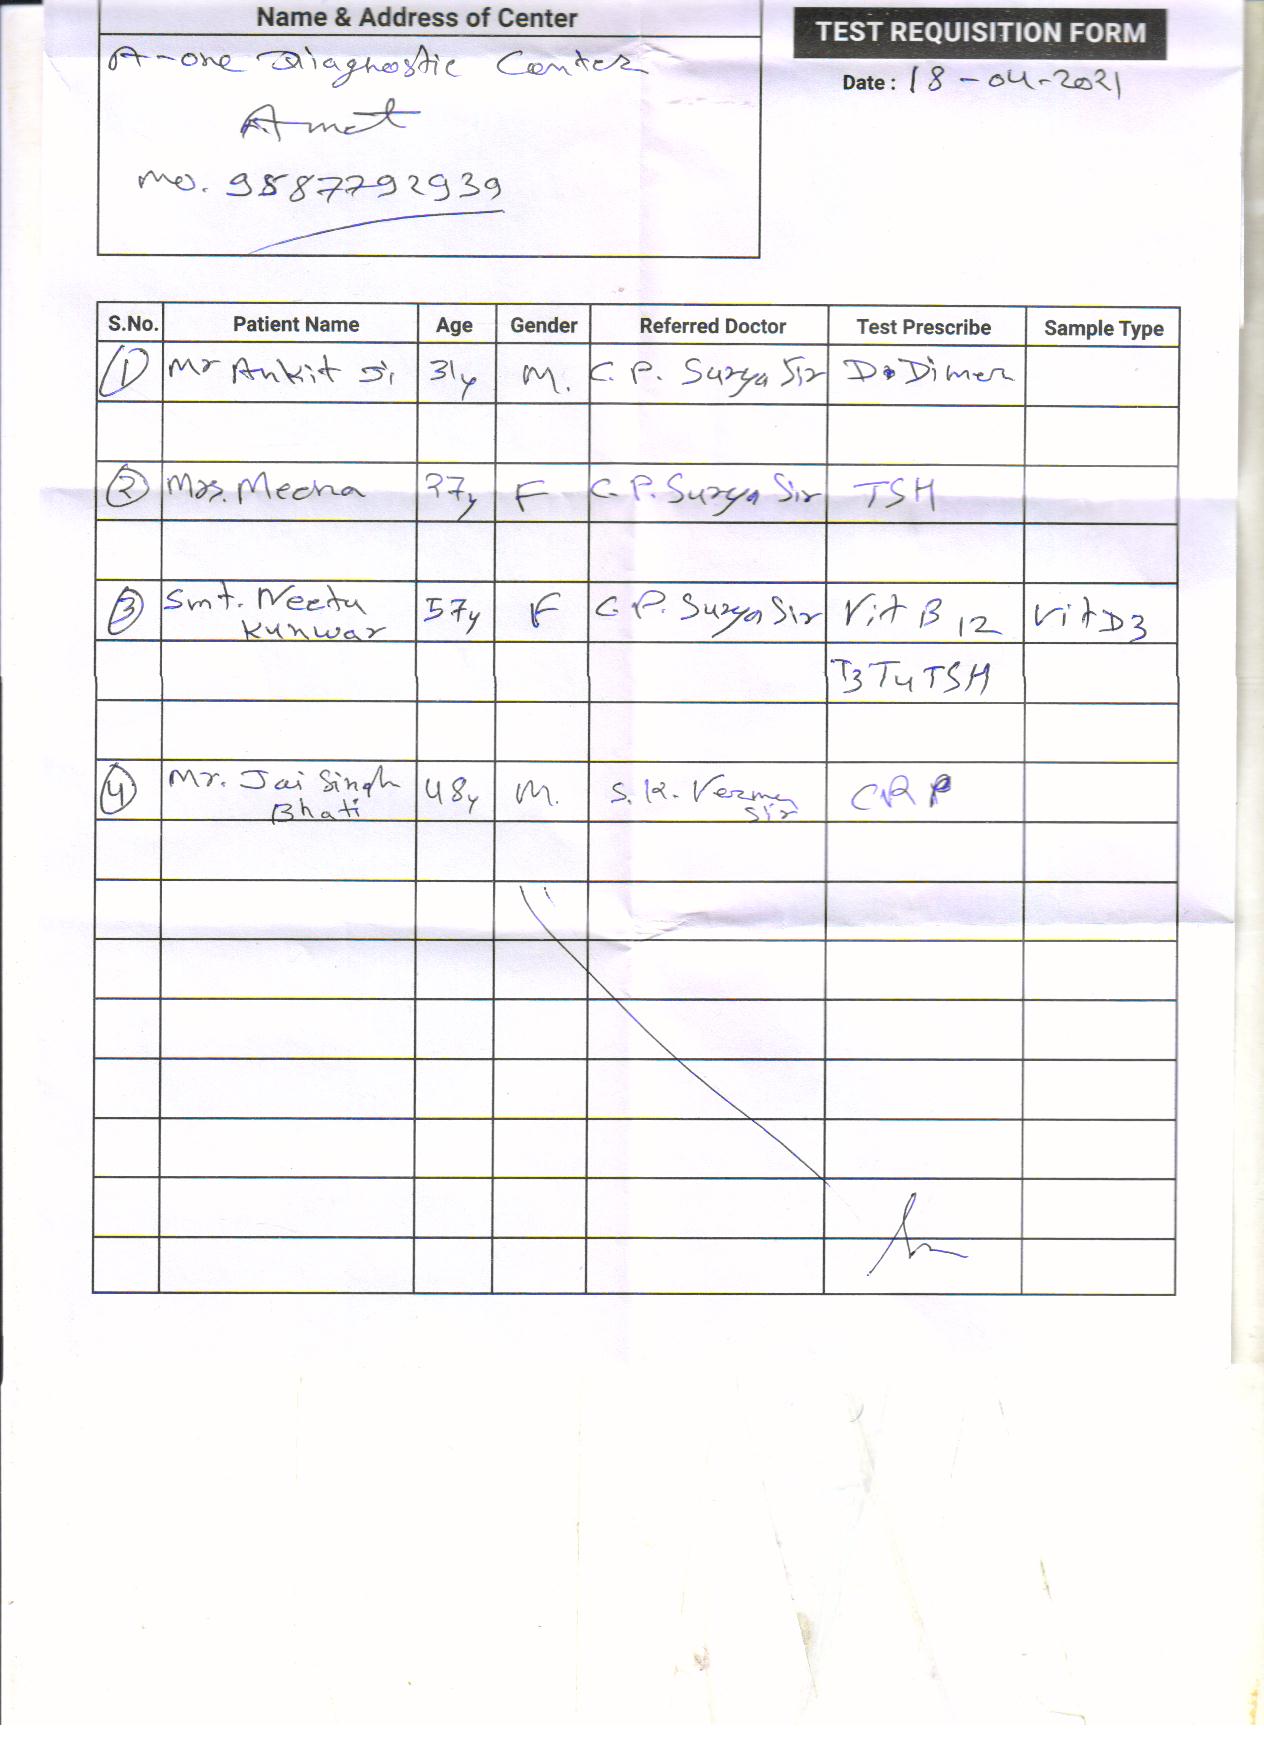 Name & Address of Center
TEST REQUISITION FORM
A-one Diagnostic Center
Date : 18-04-2021
Amet
Mo. 9587792939
S.No. Patient Name Age Gender Referred Doctor Test Prescribe Sample Type
1 Mr Ankit Ji 31y M. C. P. Surya Sir D Dimer
2 Mrs. Meena 37y F C. P. Surya Sir TSH
3 Smt. Neetu Kunwar 57y F C. P. Surya Sir Vit B 12 Vit D3
T3 T4 TSH
4 Mr. Jai Singh Bhati 48y M. S. K. Verma Sir CRP